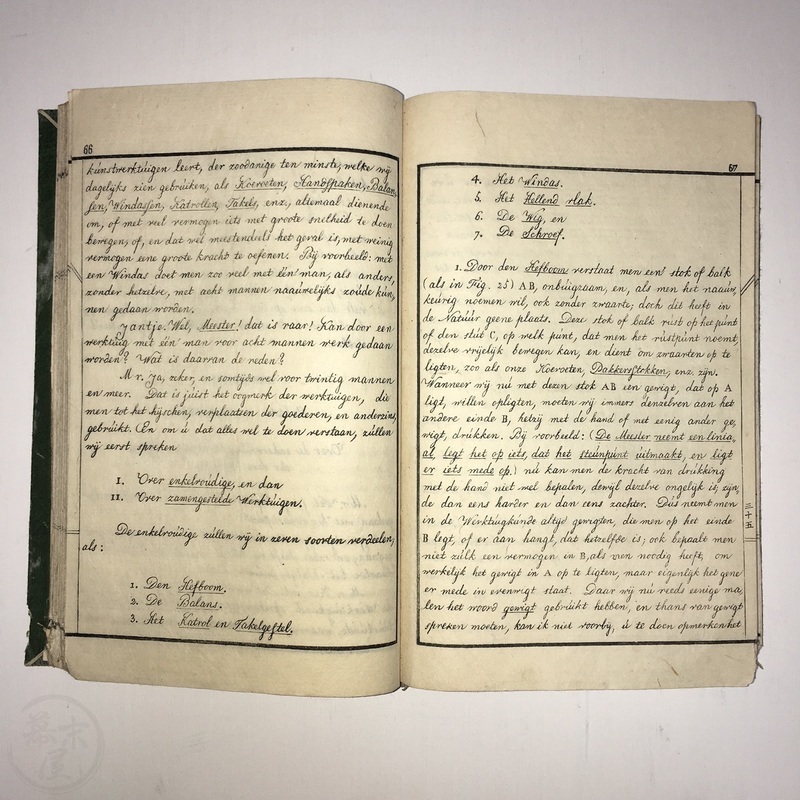 66
kúnstwerktúigen leert, der zoodanige ten minste, welke wij
dagelijks zien gebrúiken, als Koevoeten, Handspaken, Balan,
sen, Windassen, Katrollen, Takels, enz, altemaal dienende
om, of met veel vermogen iets met groote snelheid te doen
bewegen; of, en dat wel meestendeels het geval is, met weinig
vermogen eene groote kracht te oefenen. Bij voorbeeld: met
een Windas doet men zoo veel met één man, als anders,
zonder hetzelve, met acht mannen naaúwelijks zoúde kún,
nen gedaan worden.
Jantje. Wel, Meester! dat is raar! Kan door een
werktúig met één man voor acht mannen werk gedaan
worden? Wat is daarvan de reden?
Mr. Ja, zeker, en somtijds wel voor twintig mannen
en meer. Dat is júist het oogmerk der werktúigen, die
men tot het hijschen, verplaatsen der goederen, en anderzins,
gebrúikt. (En om ú dat alles wel te doen verstaan, zúllen
wij eerst spreken
I. Over enkelvoúdige, en dan
II. Over zamengestelde Werktúigen.
De enkelvoúdige zúllen wij in zeven soorten verdeelen,
als:
1. Den Hefboom.
2. De Balans.
3. Het Katrol en Takelgestel.
67
4. Het Windas.
5. Het Hellend vlak.
6. De Wig, en
7. De Schroef.
1. Door den Hefboom verstaat men een' stok of balk
(als in Fig. 25) AB, onbúigzaam, en, als men het naaúw,
keúrig noemen wil, ook zonder zwaarte, doch dit heeft in
de Natúúr geene plaats. Deze stok of balk rúst op het púnt
of den stút C, op welk púnt, dat men het rústpúnt noemt,
dezelve vrijelijk bewegen kan, en dient om zwaarten op te
ligten, zoo als onze Koevoeten, Bakkerstokken, enz. zijn.
Wanneer wij nú met dezen stok AB een gewigt, dat op A
ligt, willen opligten, moeten wij immers denzelven aan het
andere einde B, hetzij met de hand of met eenig ander ge,
wigt, drúkken. Bij voorbeeld: (De Meester neemt een linia,
al, ligt het op iets, dat het steúnpúnt úitmaakt, en ligt
er iets mede op.) nú kan men de kracht van drúkking
met de hand niet wel bepalen, dewijl dezelve ongelijk is, zijn,
de dan eens harder en dan eens zachter. Dús neemt men
in de Werktúigkúnde altijd gewigten, die men op het einde
B legt, of er aan hangt, dat hetzelfde is; ook bepaalt men
niet zúlk een vermogen in B, als men noodig heeft, om
werkelijk het gewigt in A op te ligten, maar eigenlijk het gene
er mede in evenwigt staat. Daar wij nú reeds eenige ma,
len het woord gewigt gebrúikt hebben, en thans van gewigt
spreken moeten, kan ik niet voorbij, ú te doen opmerken het
三十五